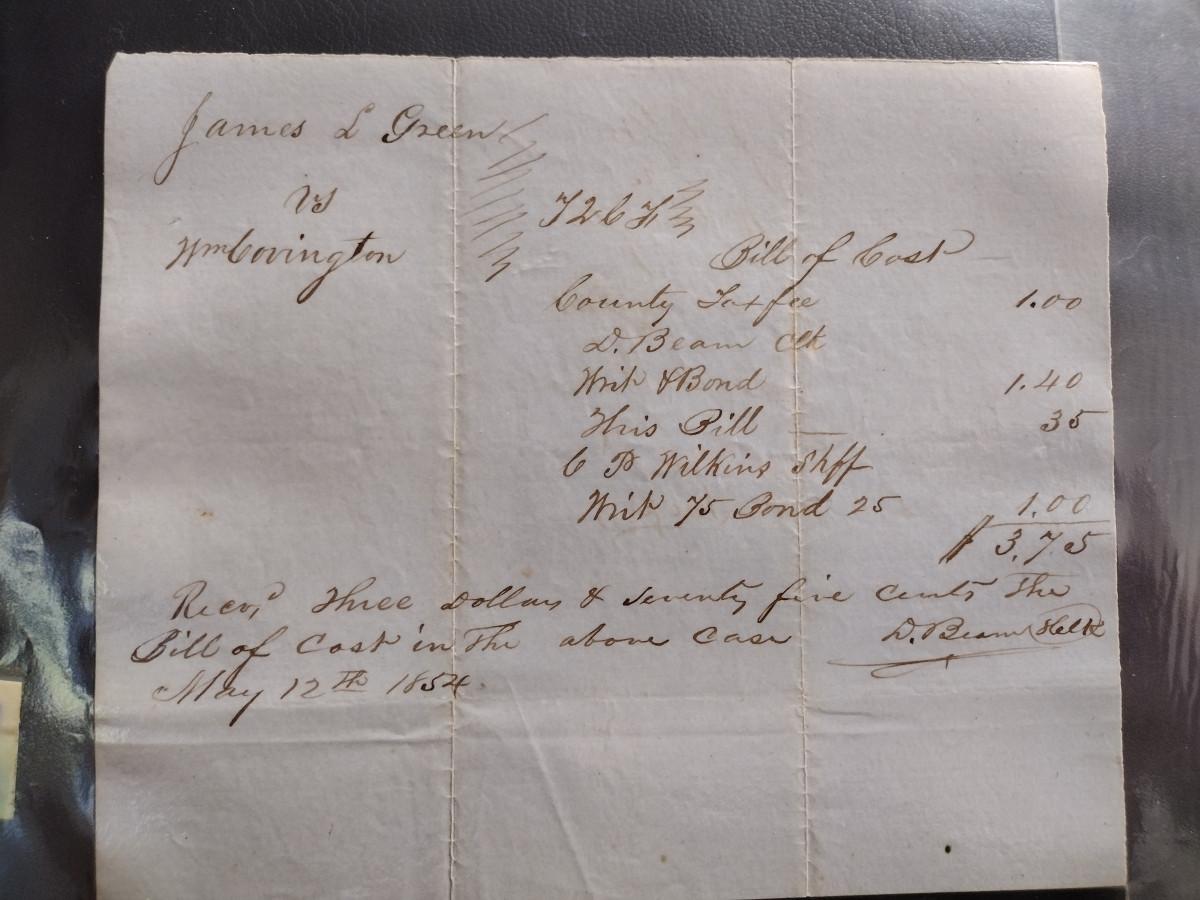 James L Green
vs
Wm Covington
Bill of Cost
County Tax fee 1.00
D. Beam Clk
Writ & Bond 1.40
This Bill 35
C P Wilkins Shff
Writ 75 Bond 25 1.00
$ 3.75
Recvd Three Dollars & seventy five cents The
Bill of Cost in The above Case D. Beam
May 12th 1854.